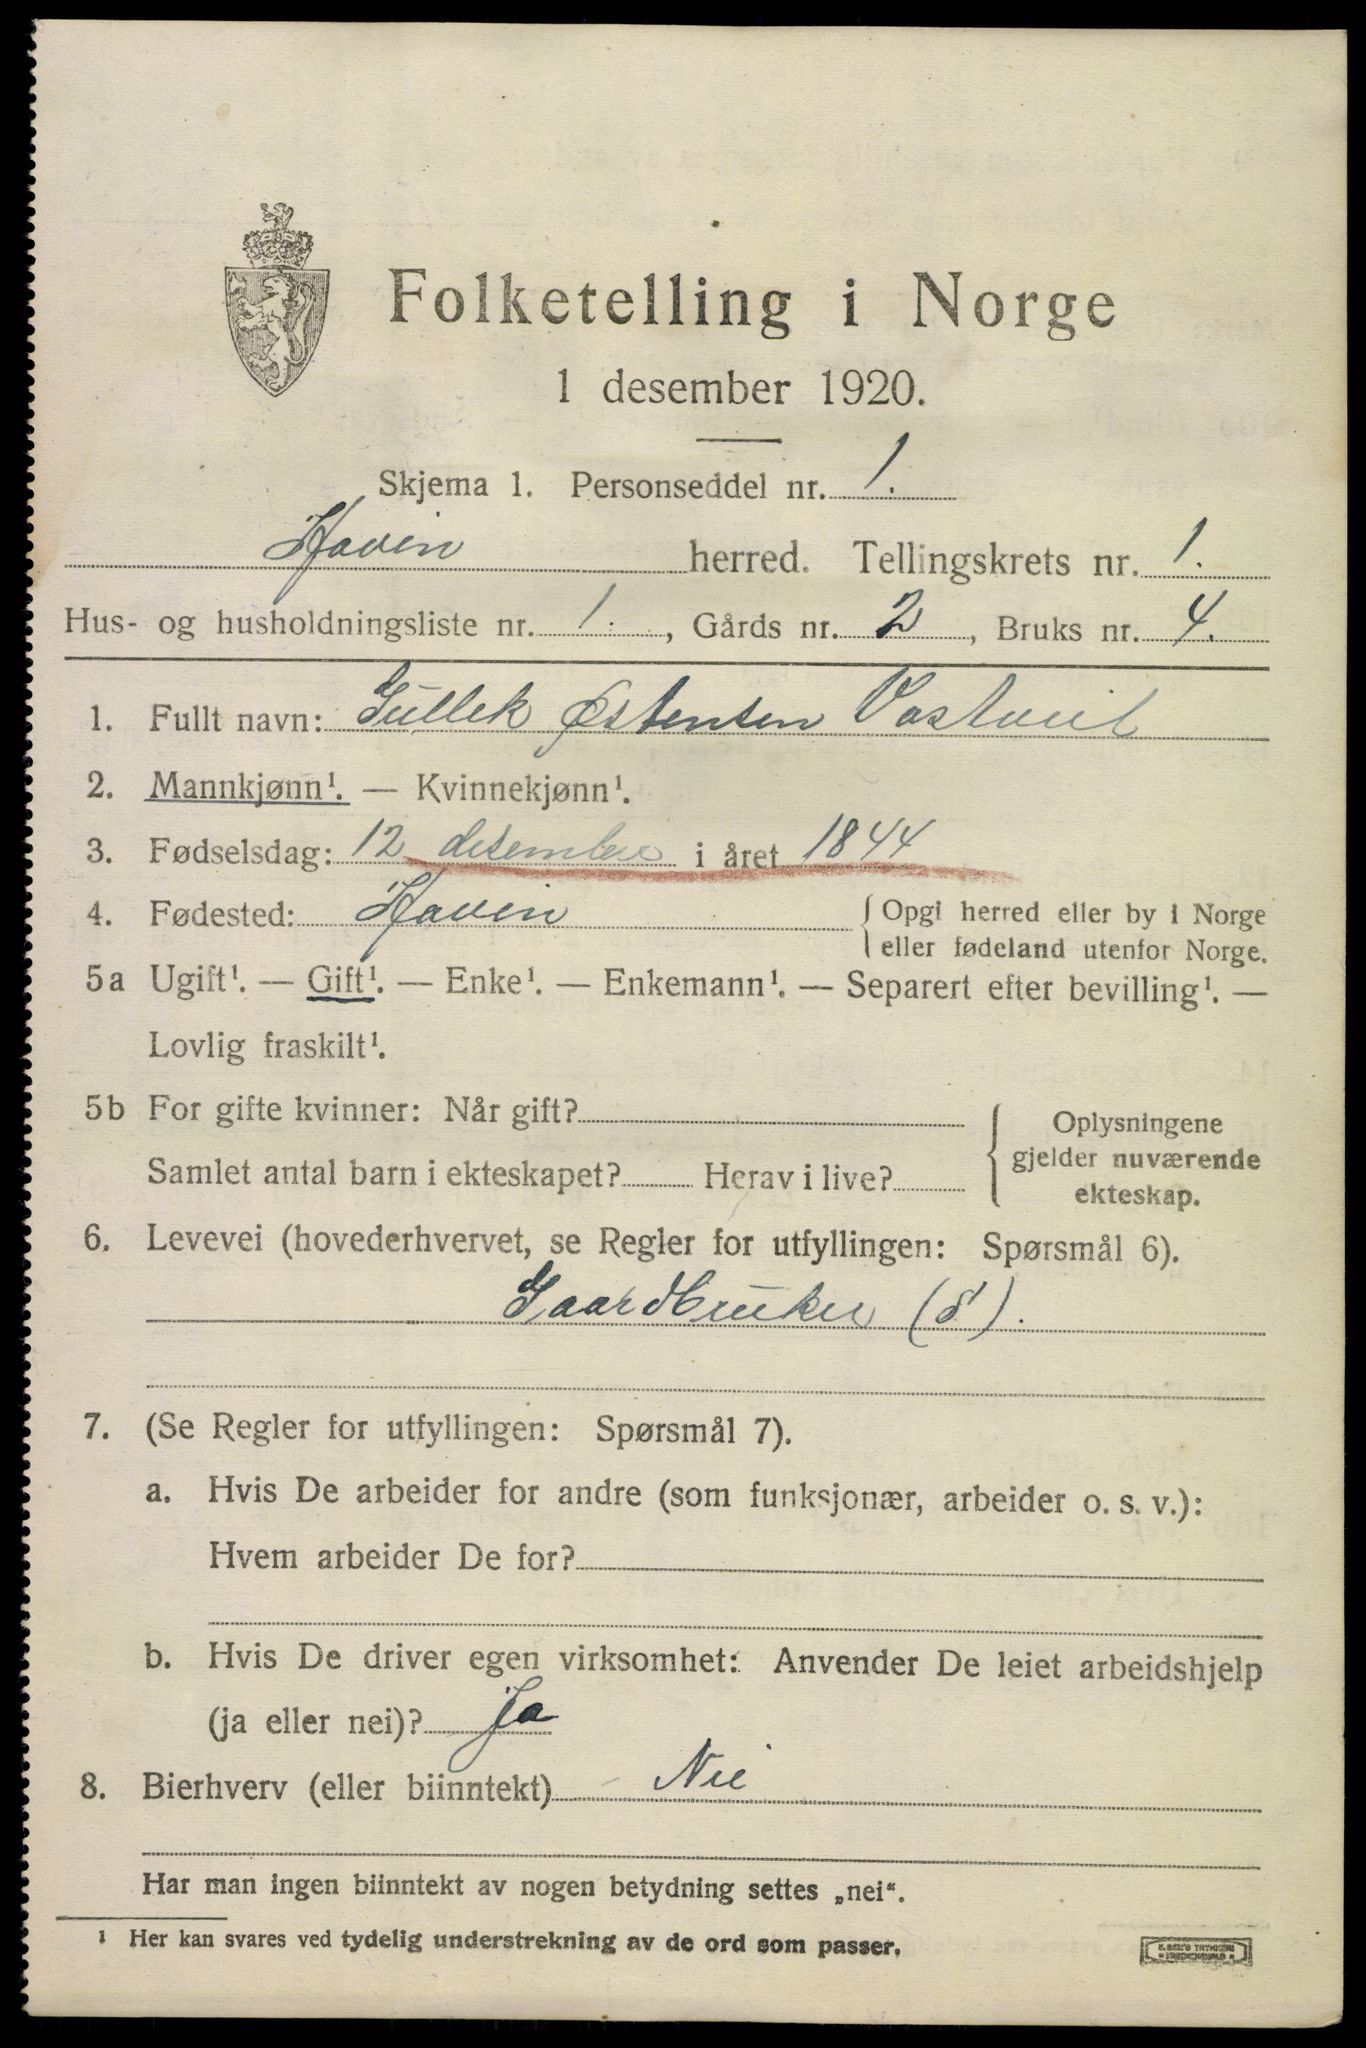 Folketelling i Norge
1 desember 1920.
Skjema 1. Personseddel nr. 1.
Hovin herred. Tellingskrets nr. 1.
Hus- og husholdningsliste nr. 1. , Gårds nr. 2 , Bruks nr. 4.
1. Fullt navn: Gullek Østensen Vastveit
2. Mannkjønn¹. — Kvinnekjønn¹.
3. Fødselsdag: 12 desember i året 1844
4. Fødested: Hovin { Opgi herred eller by i Norge
eller fødeland utenfor Norge.
5a Ugift¹. — Gift¹. — Enke¹. — Enkemann¹. — Separert efter bevilling¹. —
Lovlig fraskilt¹.
5b For gifte kvinner: Når gift?
Samlet antal barn i ekteskapet? Herav i live?
{ Oplysningene
gjelder nuværende
ekteskap.
6. Levevei (hovederhvervet, se Regler for utfyllingen: Spørsmål 6).
Gaardbruker (S).
7. (Se Regler for utfyllingen: Spørsmål 7).
a. Hvis De arbeider for andre (som funksjonær, arbeider o. s. v.):
Hvem arbeider De for?
b. Hvis De driver egen virksomhet: Anvender De leiet arbeidshjelp
(ja eller nei)? Ja
8. Bierhverv (eller biinntekt) Nei
Har man ingen biinntekt av nogen betydning settes „nei“.
¹ Her kan svares ved tydelig understrekning av de ord som passer.